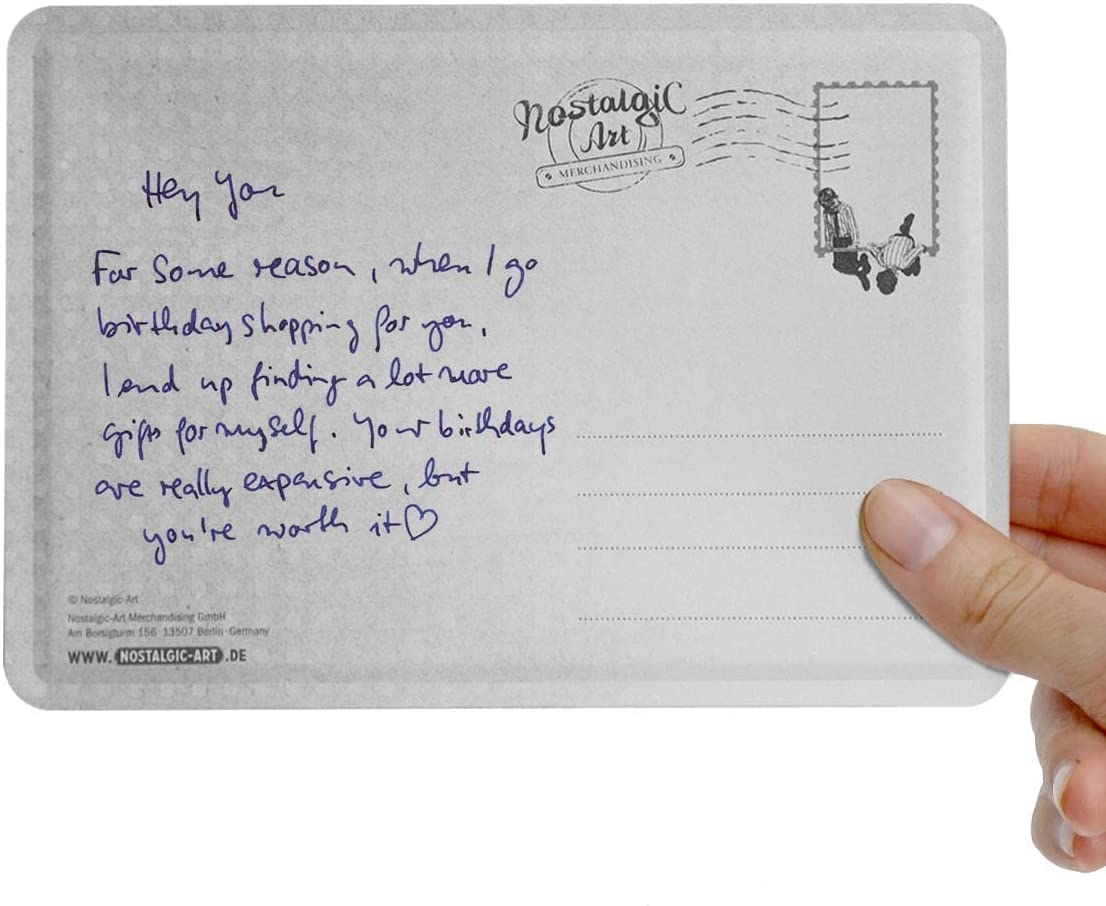 Nostalgic
Art
MERCHANDISING
Hey You
For some reason, when I go
birthday shopping for you,
I end up finding a lot more
gifts for myself. Your birthdays
are really expensive, but
you're worth it♡
© Nostalgic-Art
Nostalgic-Art Merchandising GmbH
Am Borsigturm 156 · 13507 Berlin · Germany
WWW.NOSTALGIC-ART.DE